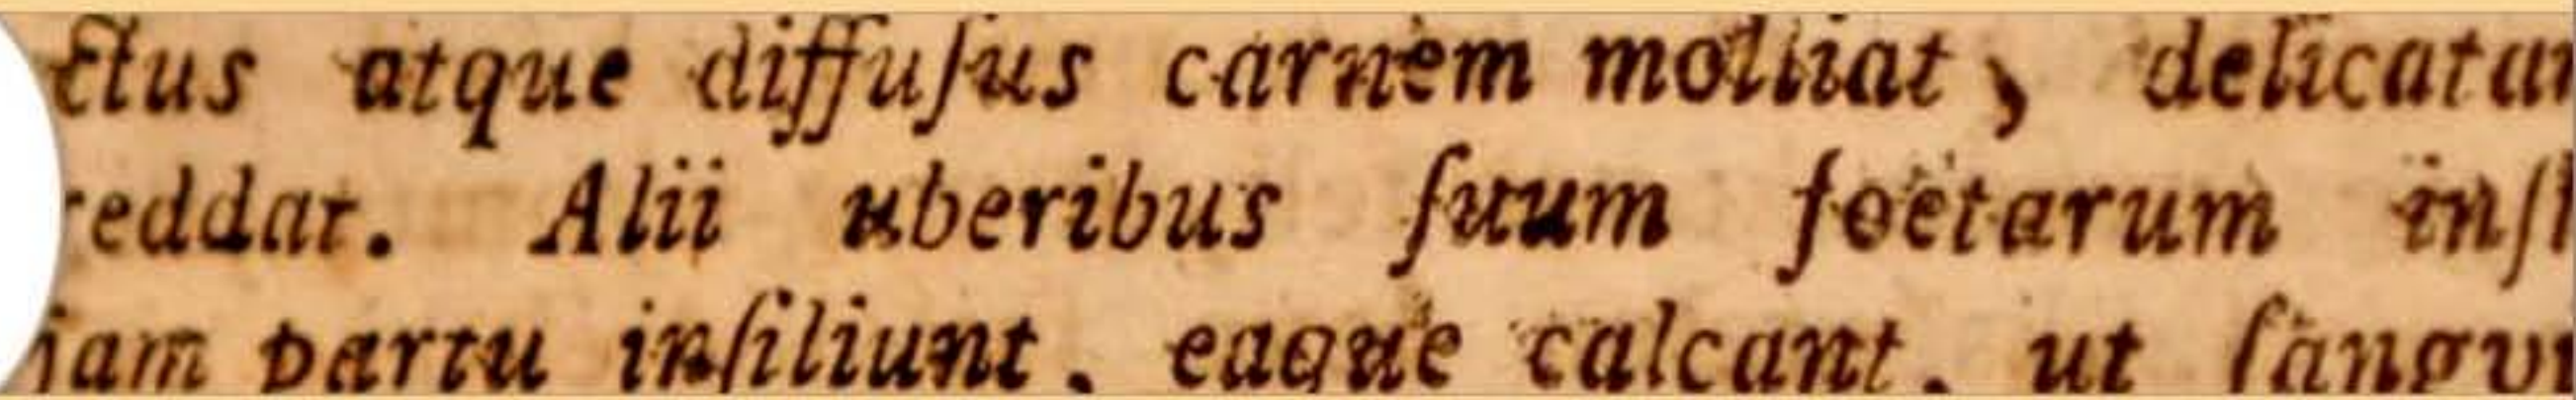 ctus atque diffuſus carnem molliat, delicatam
reddat. Alii uberibus ſuum foetarum inſt
iam partu inſiliunt, eaque calcant, ut ſangui